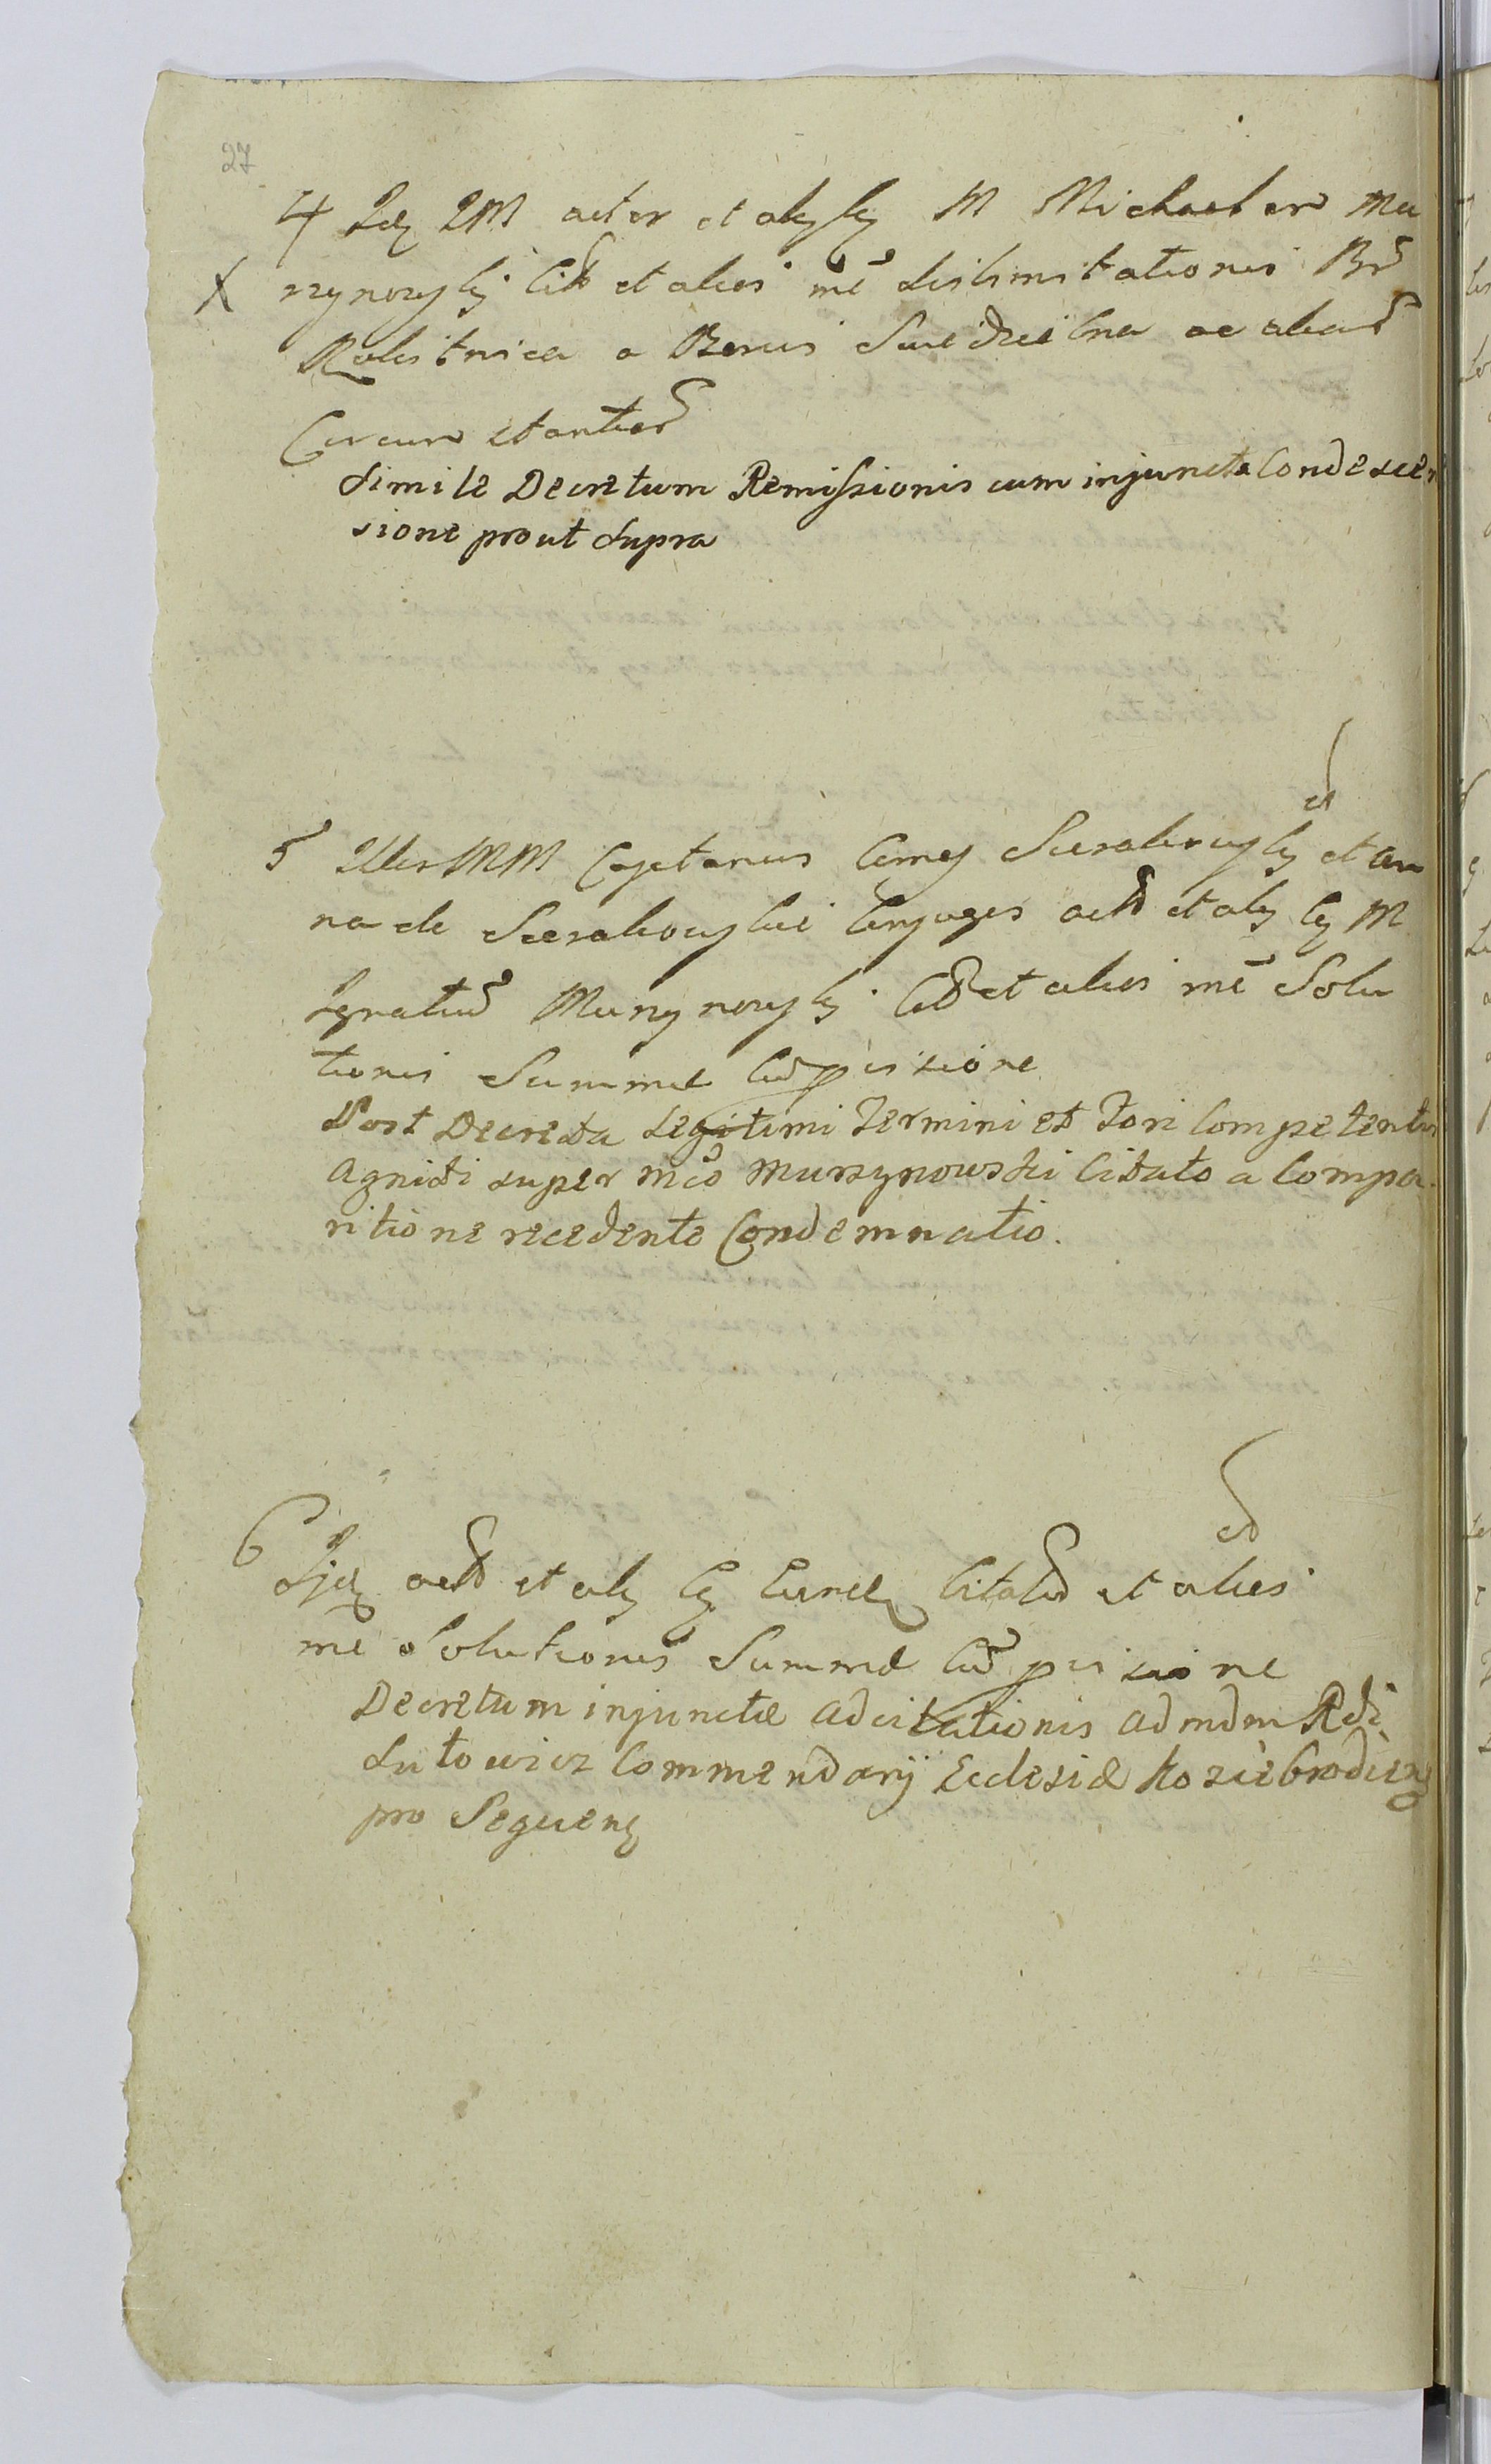 27
4 Idq IM actor et alÿ Cq M Michaelem Mu
X rzynowsky Citt et alios mē dislimitationis Br
Rokitnica a Bonis Swidzielna ac aliar
Circumstantiar
Simile Decretum Remissionis cum injuncta Condescen
sione prout supra
d
5 Illes MM Cajetanus Comes Sierakowsky et An
na de Sierakowskie Conjuges act et alÿ Cq M
Ignatiu Murzynowsky Cit et alios mē Solu
tionis Summæ Cu pisione
Post Decreta Legitimi Termini et Fori Competentis
agniti super Mco Murzynowski Citato a Compa
ritione recedente Condemnatio.
d
6 Ijdq act et alÿ Cq Eundq Citatu et alios
mē Solutionis Summæ Cu pisione
Decretum injunctæ adcitationis admdm Rdi
Lutowicz Commendarÿ Ecclesiæ Koziebrodien
pro Sequenq